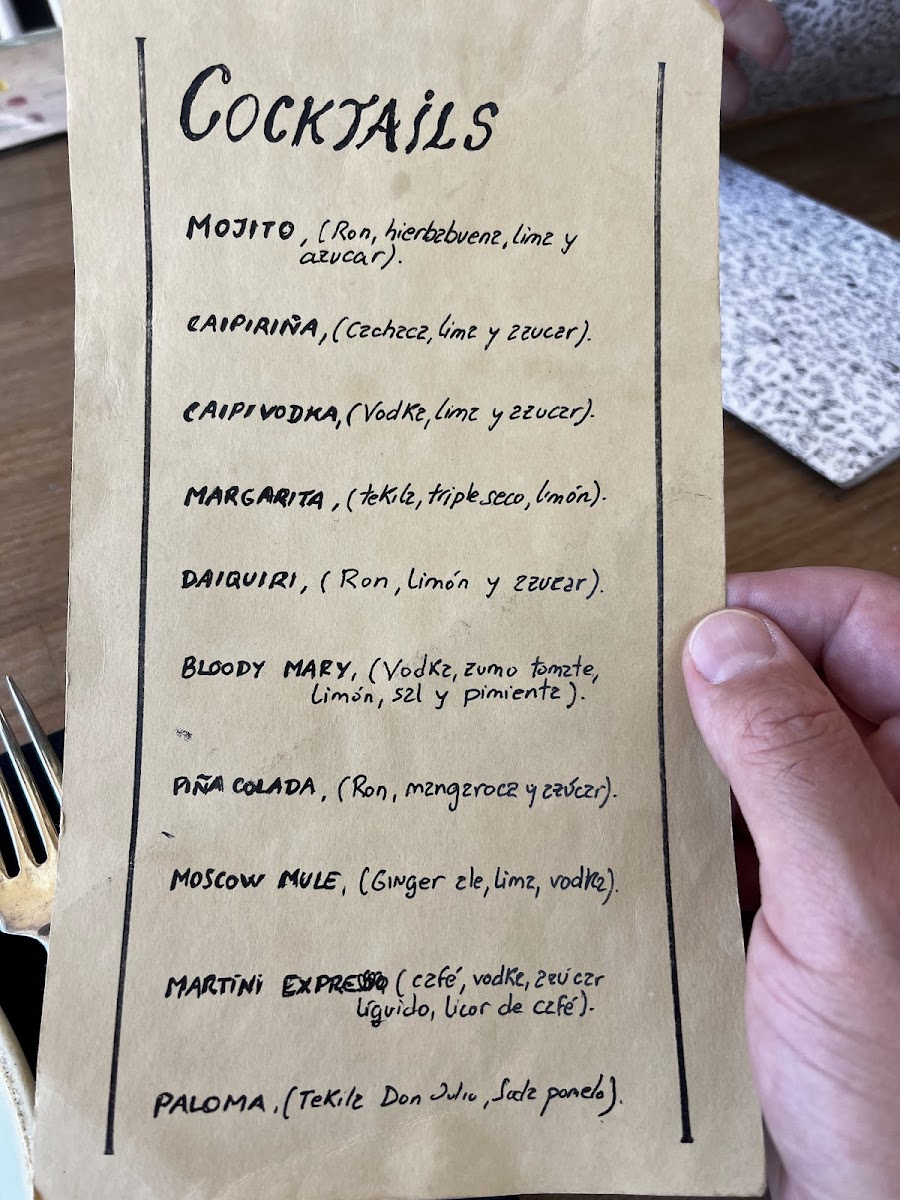 COCKTAILS
MOJITO, (Ron, hierbabuena, lima y
azucar).
CAIPIRIÑA, (Cachaca, lima y azucar).
CAIPIVODKA, (Vodka, lima y azucar).
MARGARITA, (tekila, triple seco, limón).
DAIQUIRI, (Ron, limón y azucar).
BLOODY MARY, (Vodka, zumo tomate,
limón, sal y pimienta).
PIÑA COLADA, (Ron, mangaroca y azúcar).
MOSCOW MULE, (Ginger ale, lima, vodka).
MARTINI EXPRESSO (café, vodka, azúcar
líquido, licor de café).
PALOMA, (Tekila Don Julio, Soda pomelo).